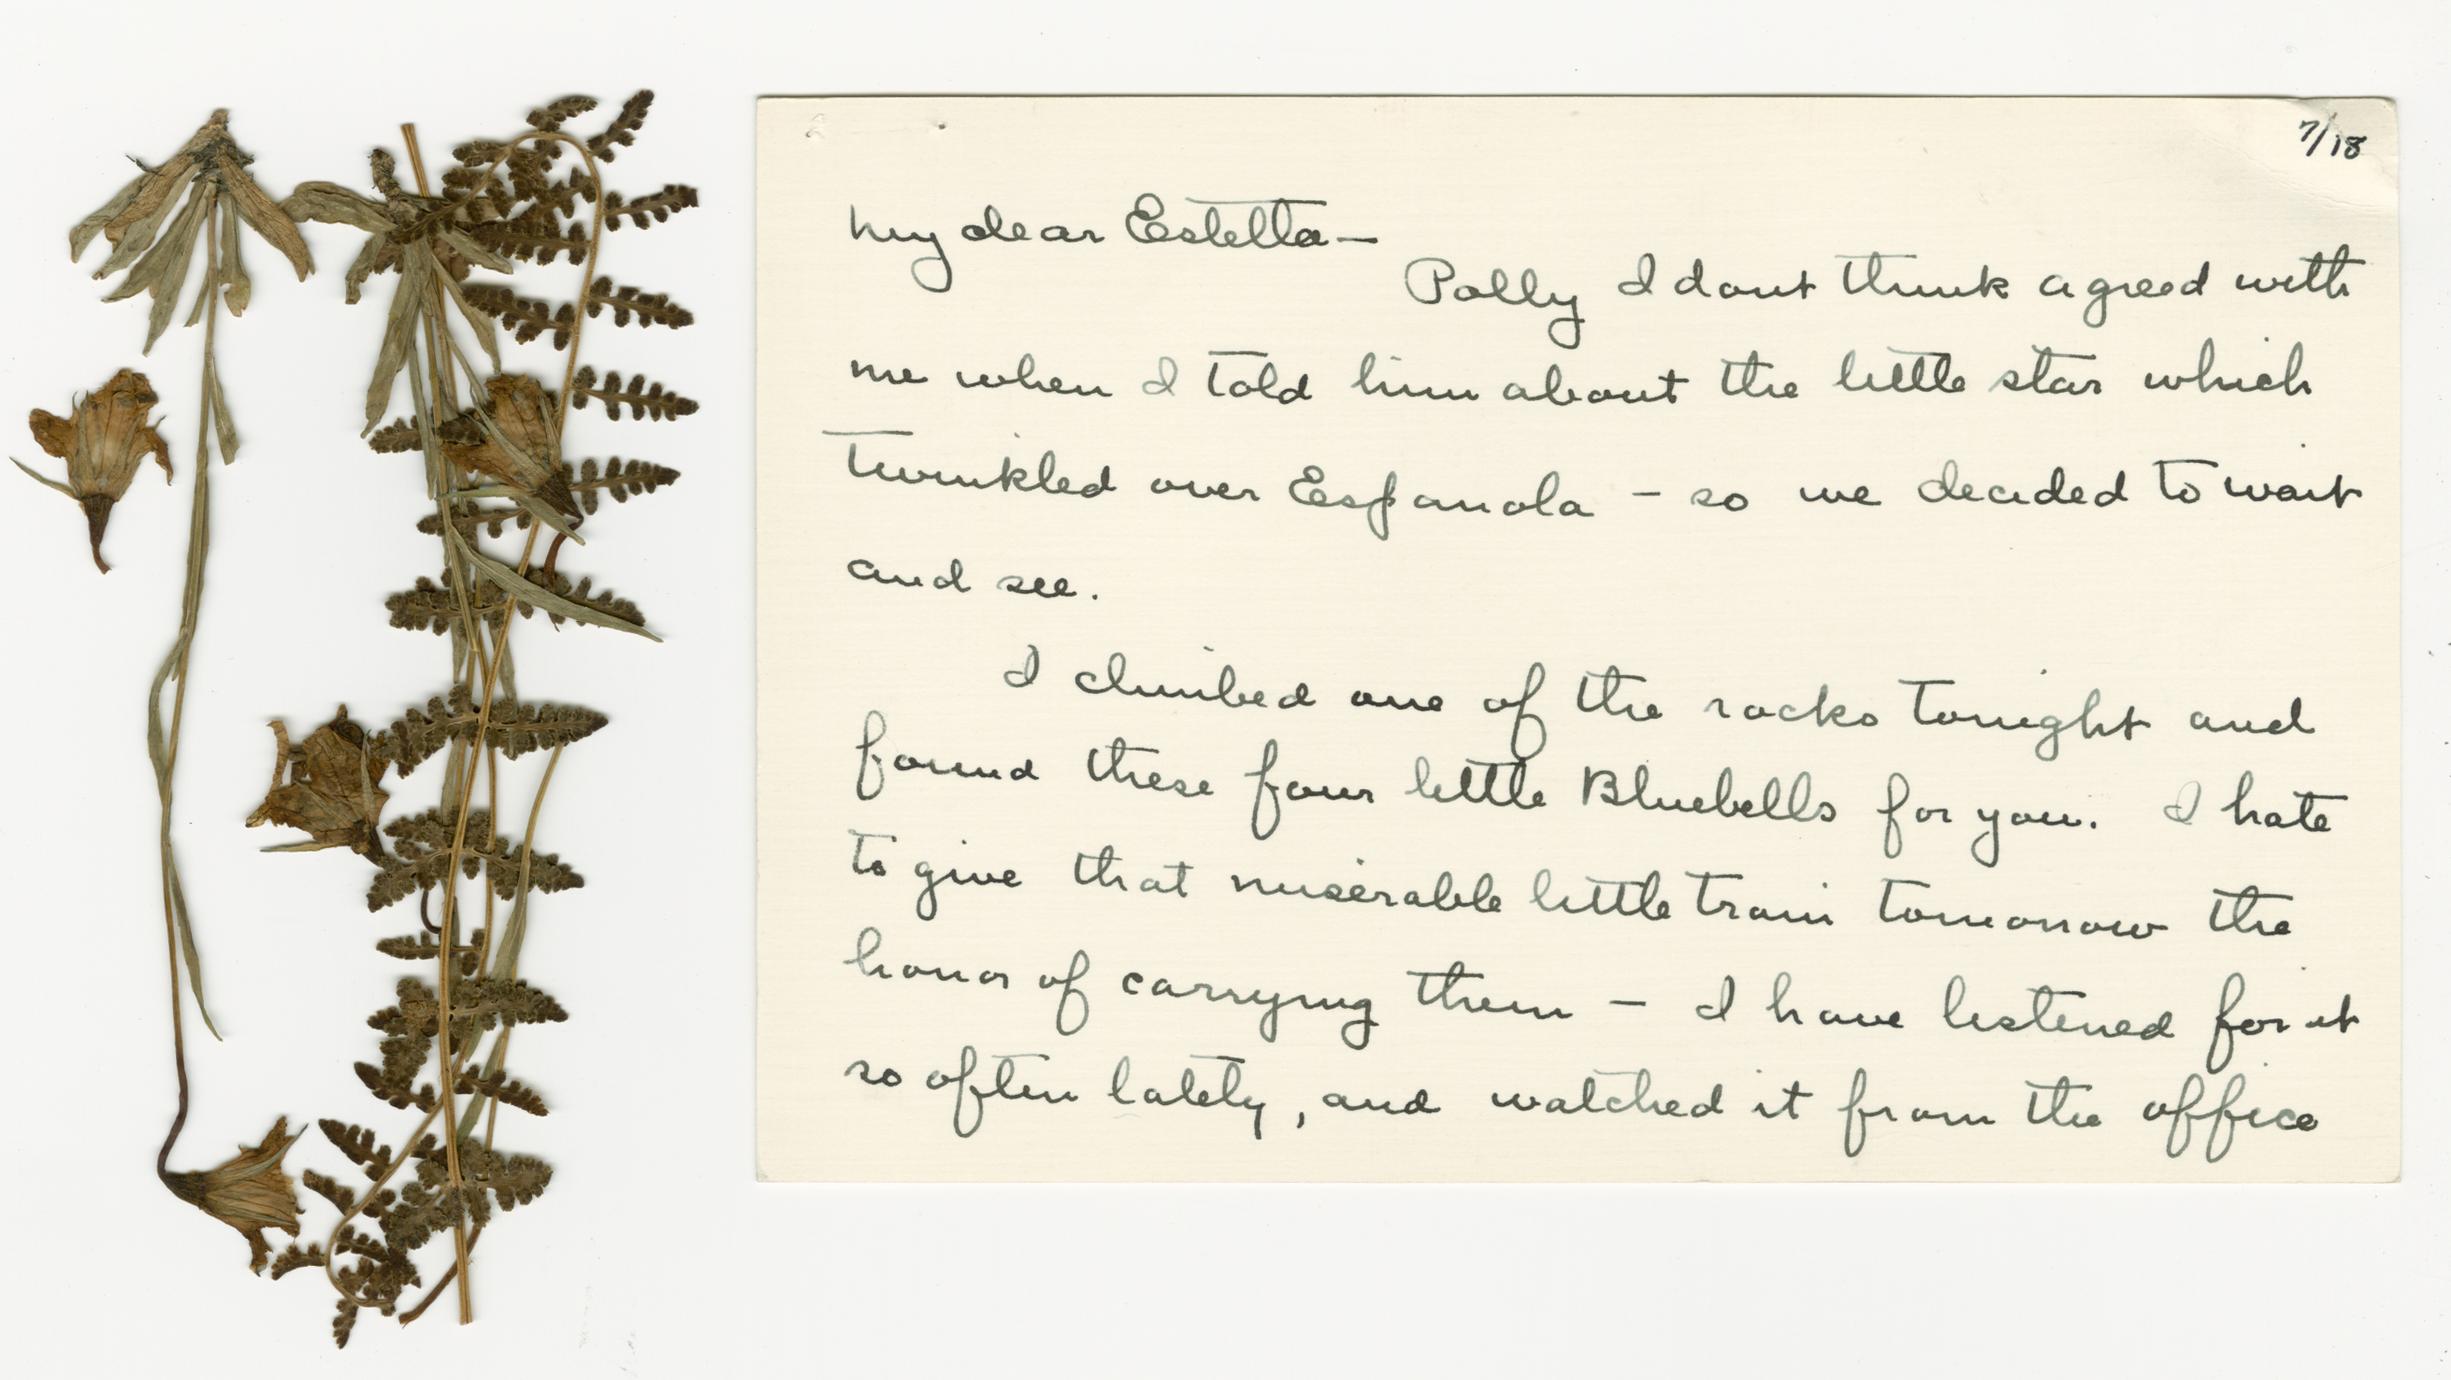 7/18
My dear Estella—
Polly I dont think agreed with
me when I told him about the little star which
twinkled over Espanola – so we decided to wait
and see.
I climbed one of the rocks tonight and
found these four little Bluebells for you. I hate
to give that miserable little train tomorrow the
honor of carrying them – I have listened for it
so often lately, and watched it from the office